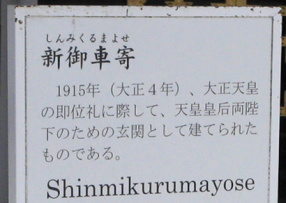 しんみくるまよせ
新御車寄
1915年（大正４年）、大正天皇
の即位礼に際して、天皇皇后両陛
下のための玄関として建てられた
ものである。
Shinmikurumayose